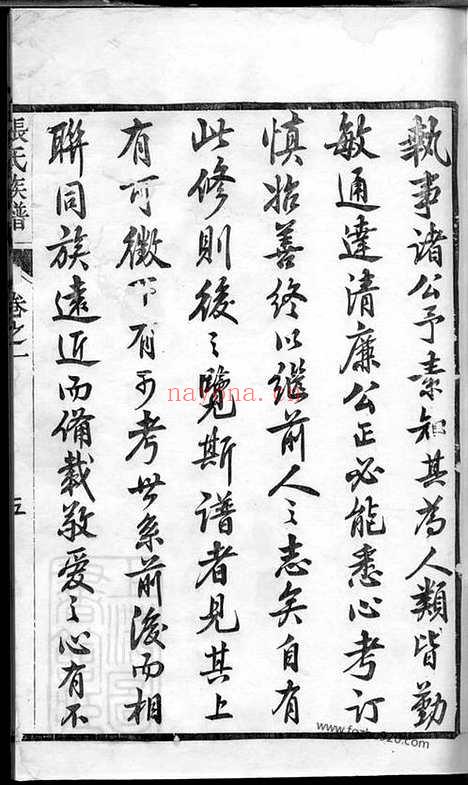 執事諸公予素知其為人類皆勤
敏通達清廉公正必能悉心考訂
慎始善終以繼前人之志矣自有
此修則後之覽斯譜者見其上
有可徵下有可考世系前後而相
聯同族遠近而備載敬愛之心有不
張氏族譜
卷之一
五
nayona.cn
www.fozhu920.com